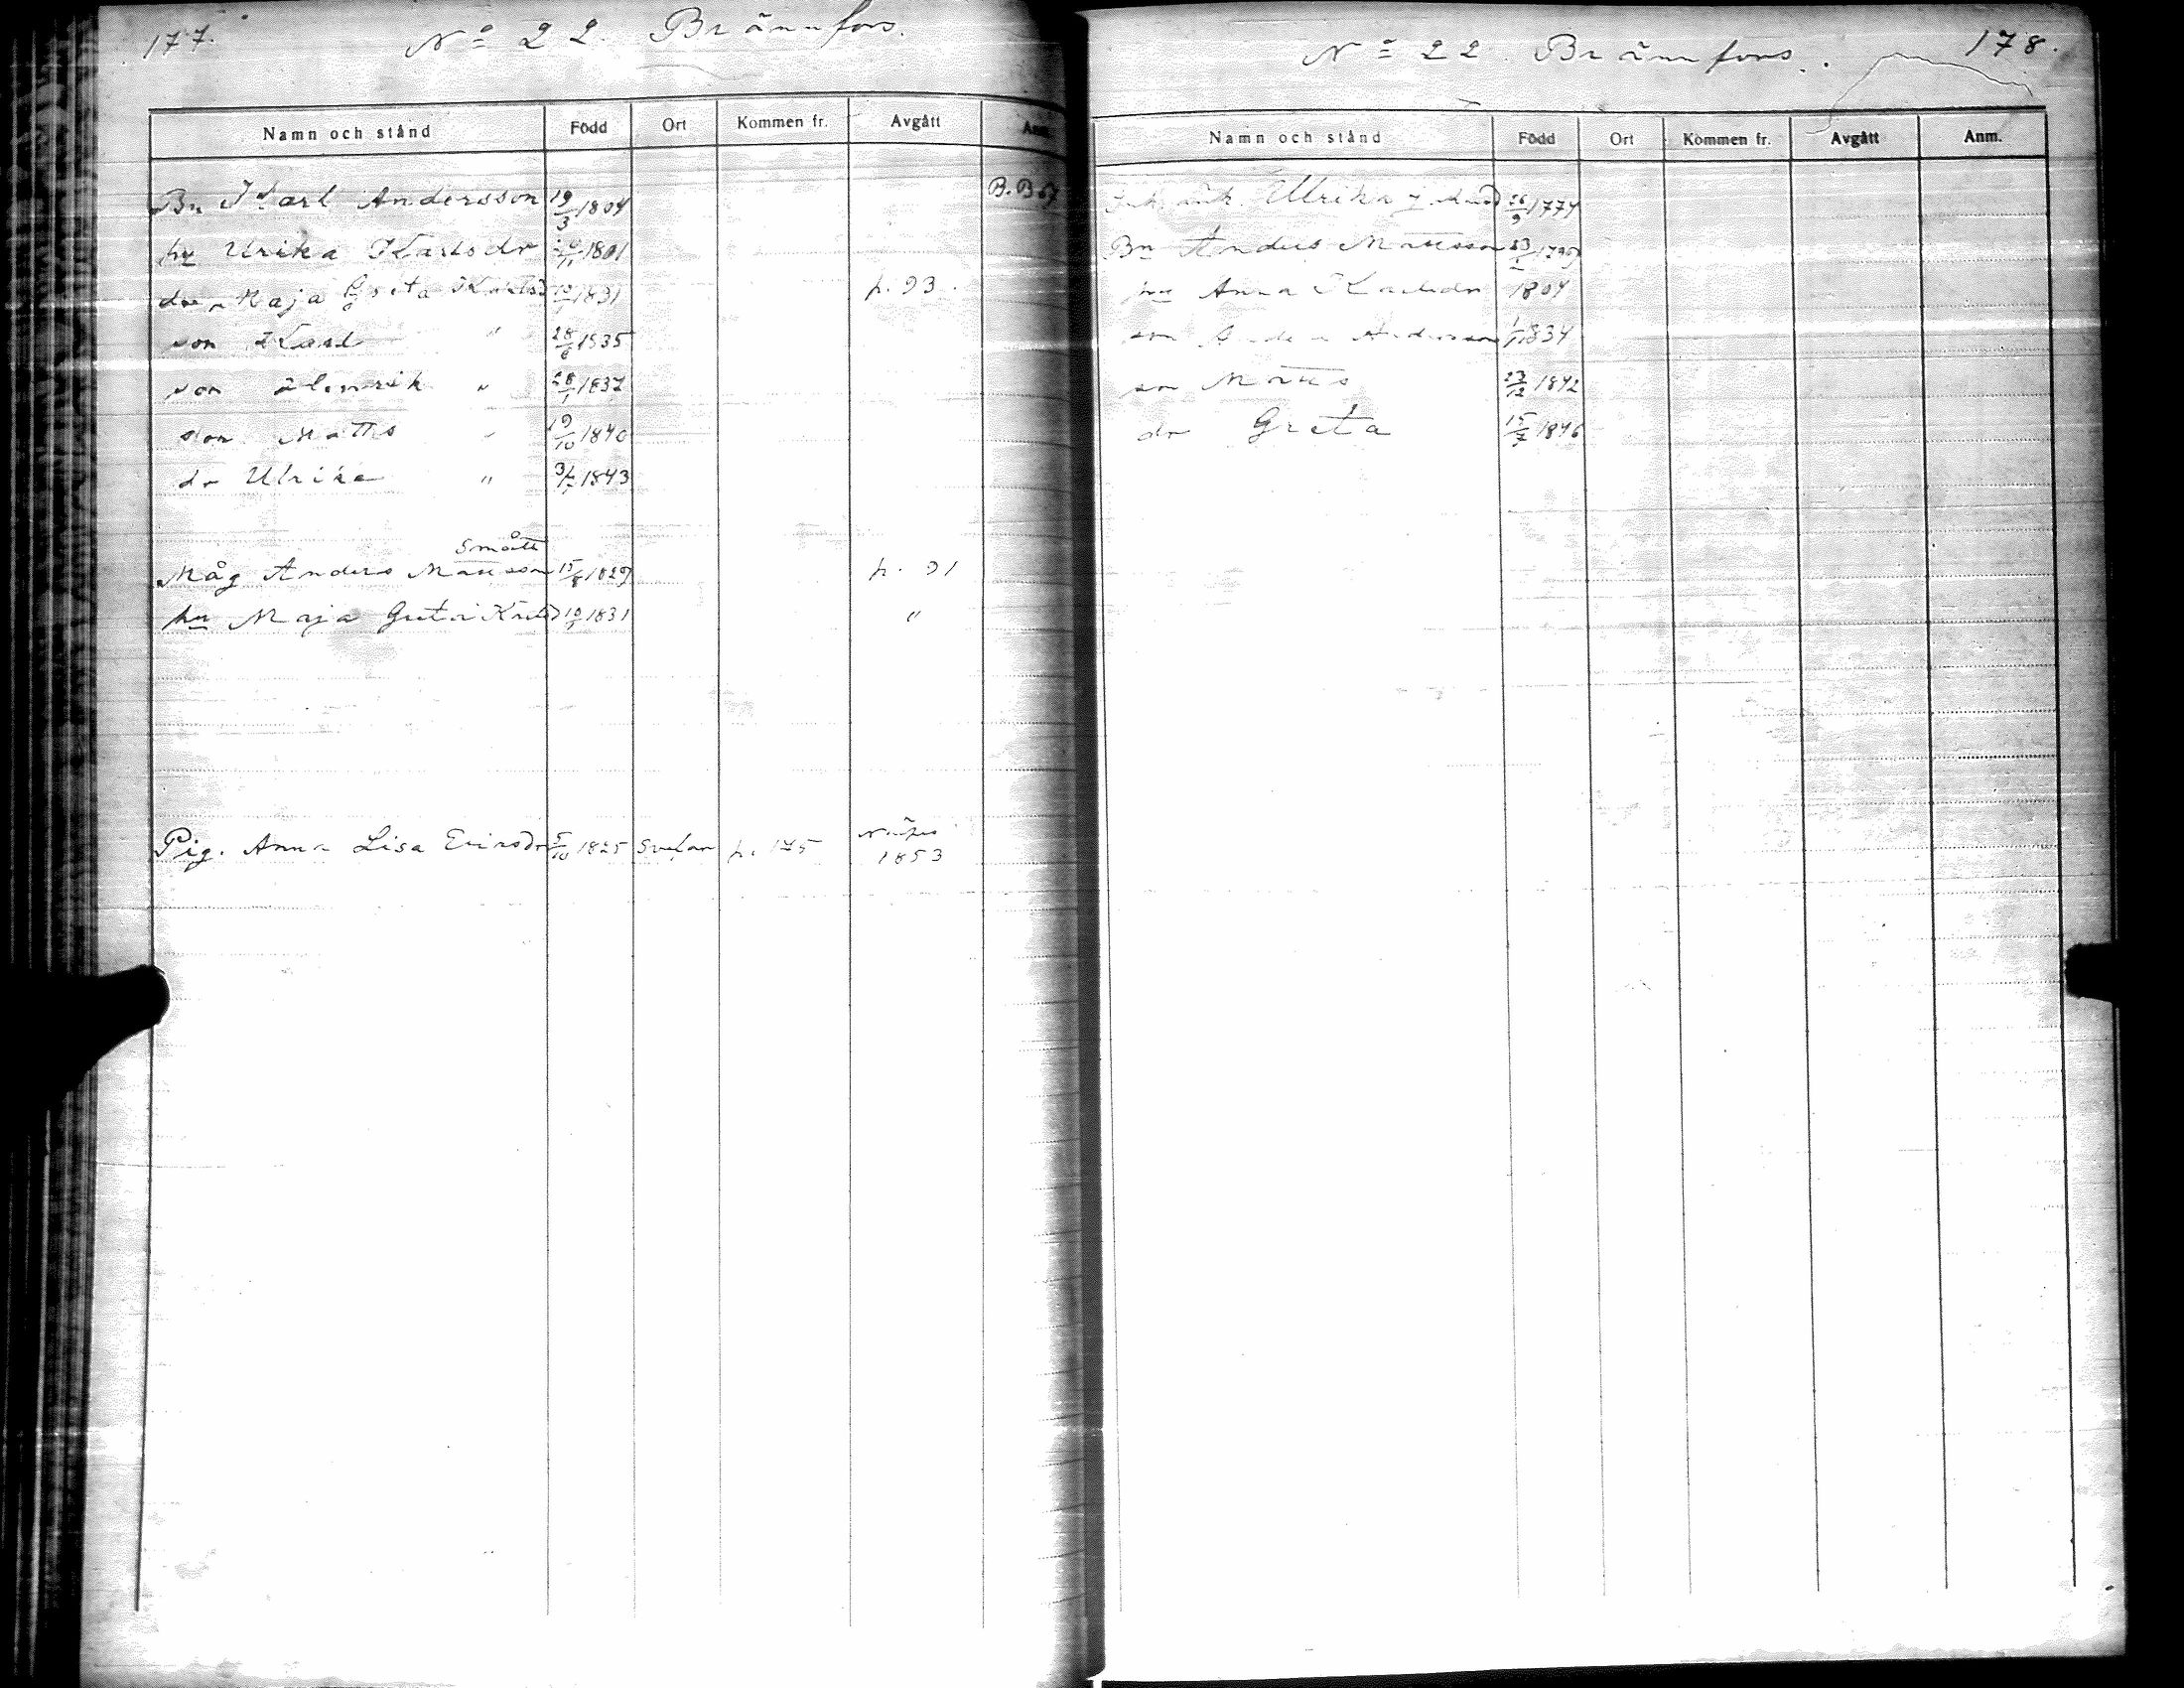 177.
No 22. Brännfors.
Namn och stånd Född Ort Kommen fr. Avgått Anm.
Bn Karl Andersson 19/3 1804 B.B 67
hu Ulrika Karlsdr 1801
dr Maja Greta Karlsd 10/1 1831 p. 93.
son Karl " 28/6 1835
son Henrik " 28/1 1837
son Matts " 19/10 1840
dr Ulrika " 1843
Smått
Måg Anders Mattsson 15/8 1829 p. 91
hu Maja Greta Karlsd 10/1 1831 "
Pig. Anna Lisa Ersdr 5/10 1825 p. 175 Närpes
1853
178.
No 22. Brännfors.
Namn och stånd Född Ort Kommen fr. Avgått Anm.
änk. Ulrika 26/9 1774
Bn Anders Mattsson 1799
hu Anna Karlsdr 1804
son Anders Andersson 1834
son Matts 23/12 1842
dr Greta 15/7 1846